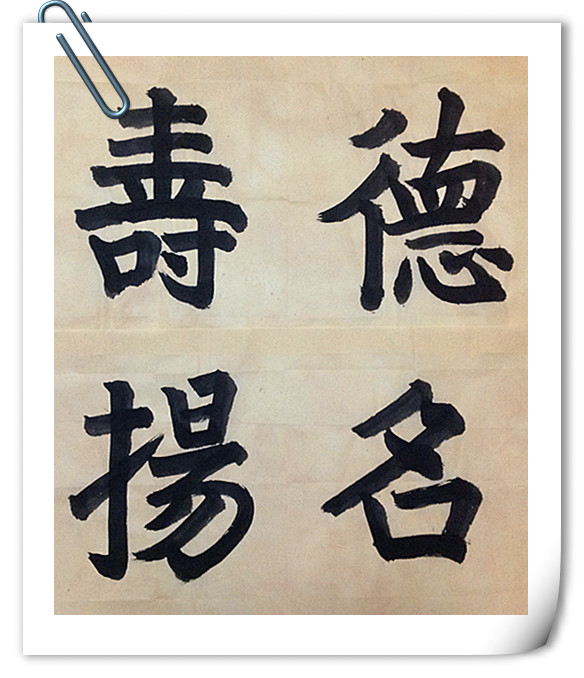 德名
壽揚